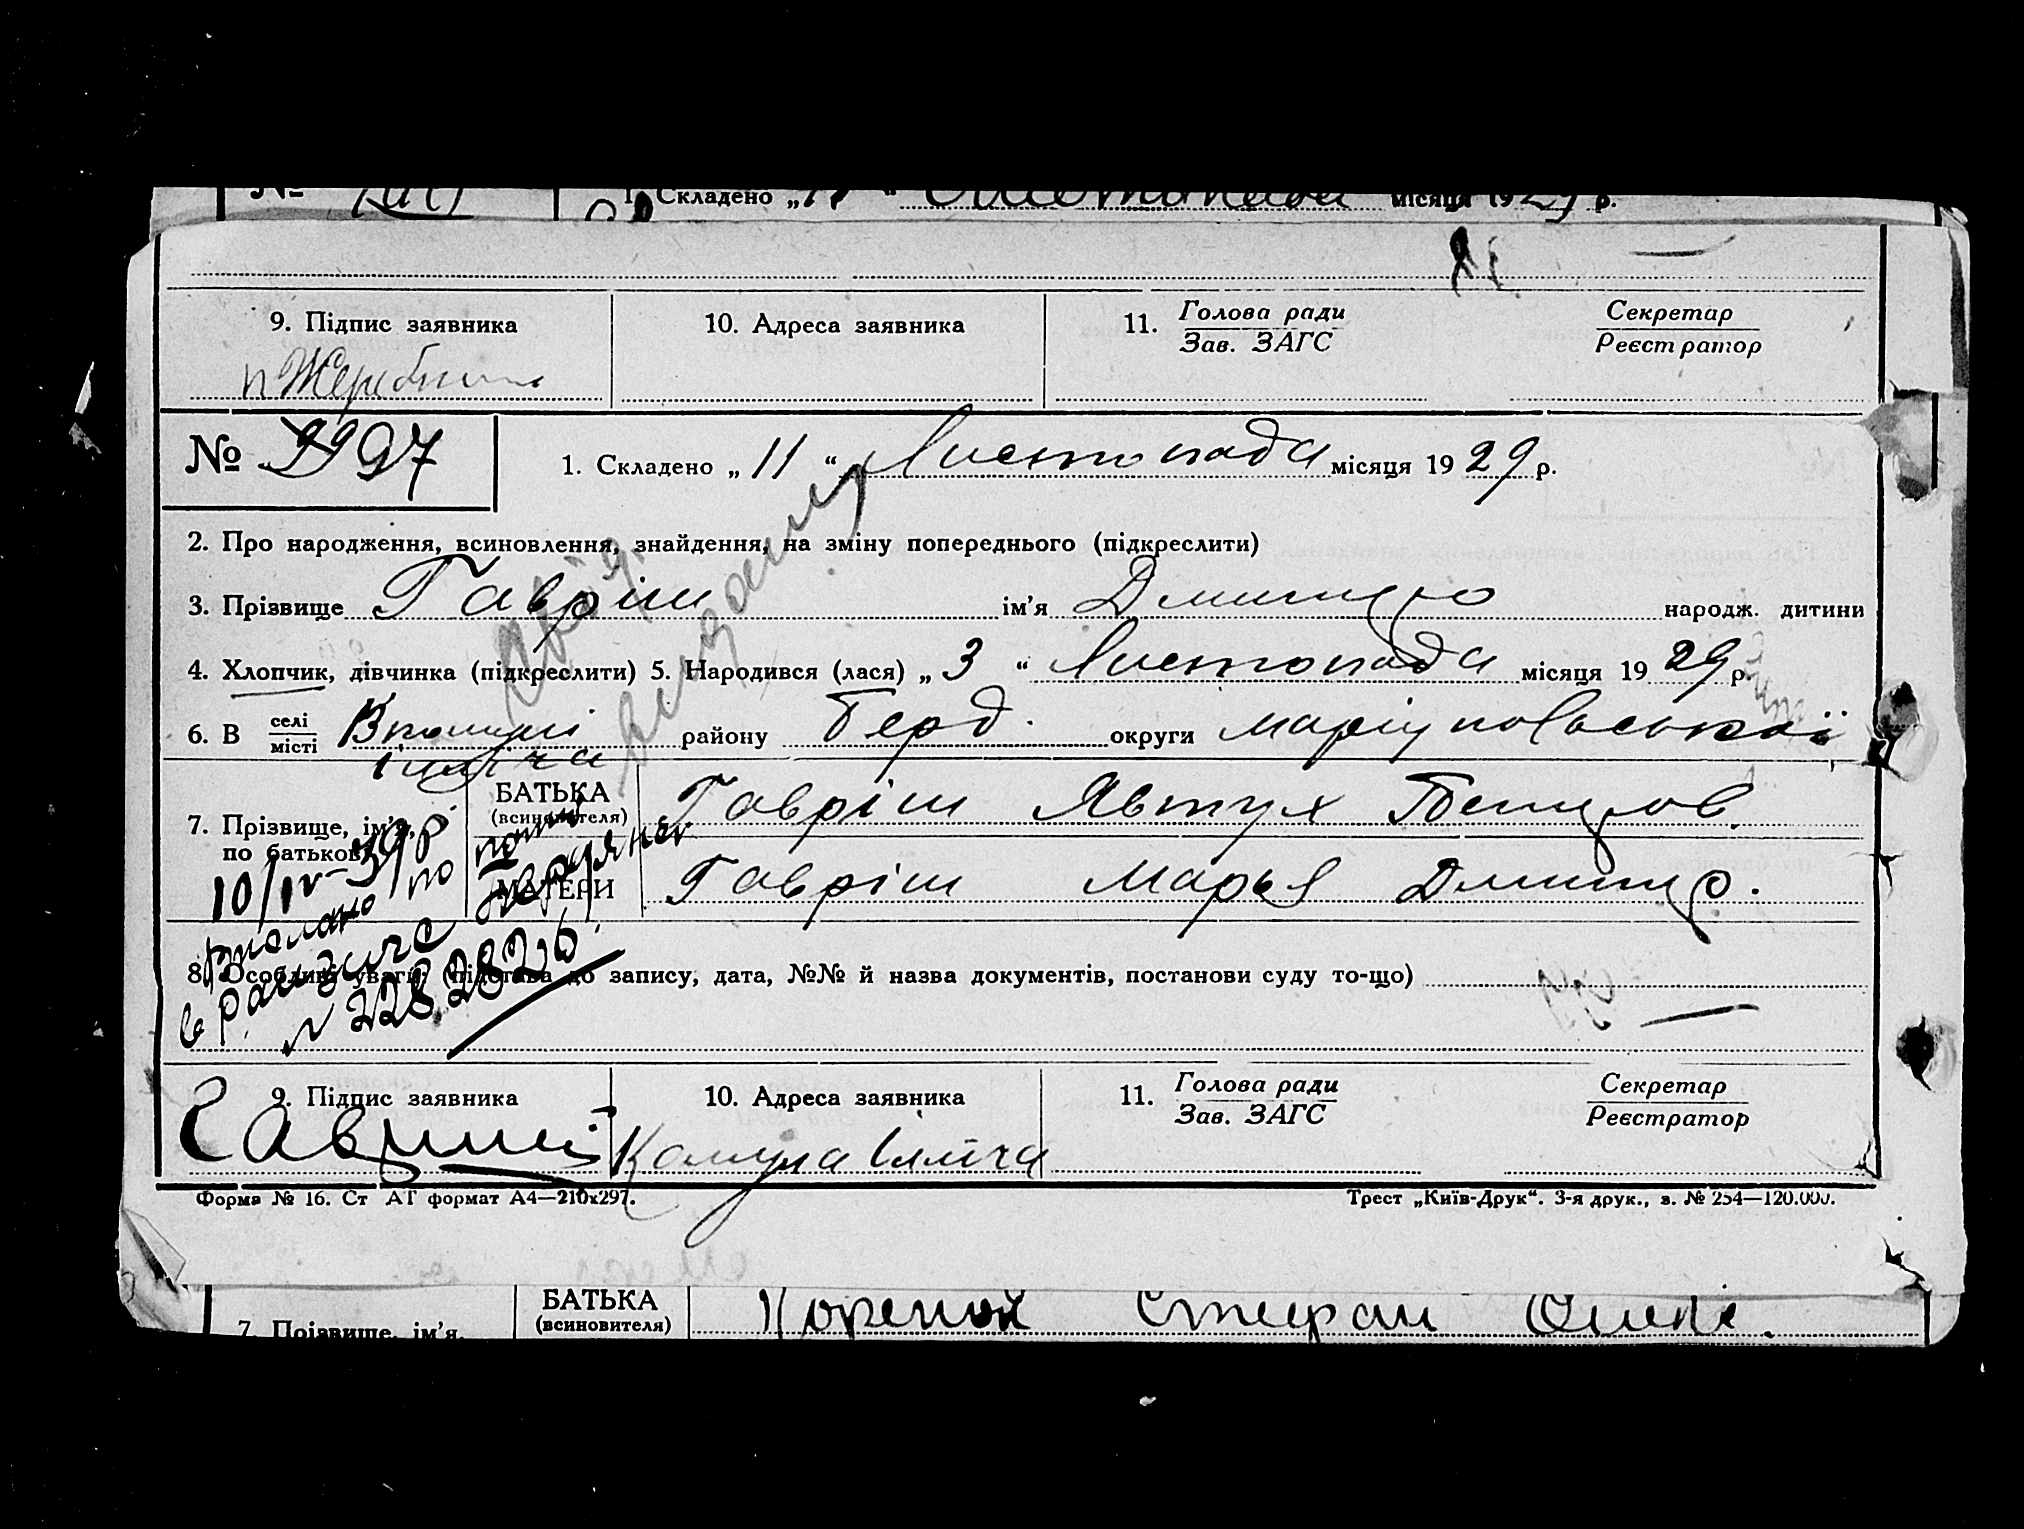 № 1. Складено „ “ Листопада місяця 1929 р.
9. Підпис заявника 10. Адреса заявника 11. Голова ради Секретар
Зав. ЗАГС Реєстратор
№ 997 1. Складено „ 11 “ Листопада місяця 1929 р.
2. Про народження, всиновлення, знайдення, на зміну попереднього (підкреслити)
3. Прізвище Гавріш ім’я Дмитро народж. дитини
4. Хлопчик, дівчинка (підкреслити) 5. Народився (лася) „ 3 “ Листопада місяця 1929 р.
6. В селі району Берд. округи Маріупольської
місті Ілліча
7. Прізвище, ім’я, по батькові
БАТЬКА (всиновителя) Гавріш Явтух
МАТЕРИ Гавріш Марья Дмитр.
10/IV-39 р.
по
в
N 228.2826.
8. Особливі уваги: (підстава до запису, дата, №№ й назва документів, постанови суду то-що)
9. Підпис заявника 10. Адреса заявника 11. Голова ради Секретар
Зав. ЗАГС Реєстратор
Гавриш Комуна Ілліча
Форма № 16. Ст АТ формат А4—210х297. Трест „Київ-Друк“. 3-я друк., з. № 254—120.000.
БАТЬКА Стефан
7. Прізвище, ім’я, (всиновителя)